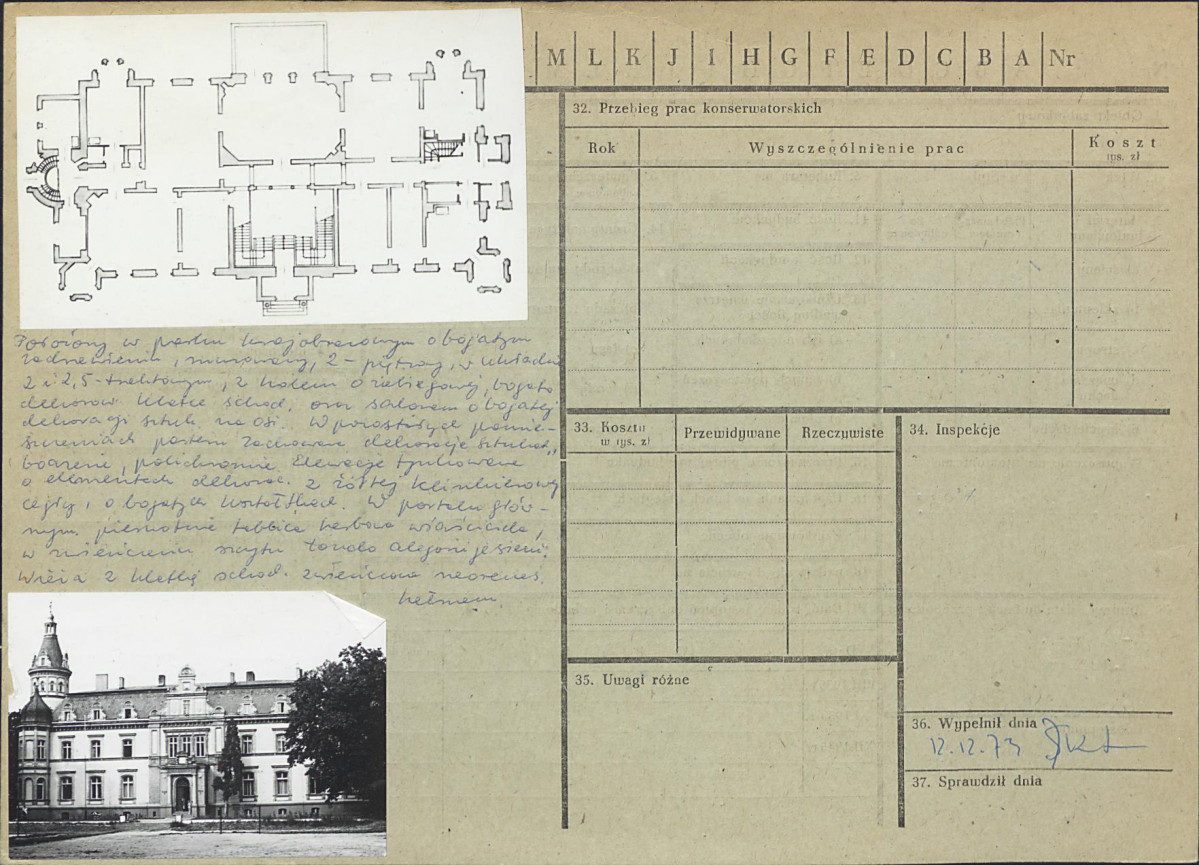 M L K J I H G F E D C B A Nr
32. Przebieg prac konserwatorskich
Rok
Wyszczególnienie prac
Koszt
tys. zł
Położony w parku krajobrazowym o bogatym
zadrzewieniu, murowany, 2-piętrowy, w układzie
2 i 2,5-traktowym, z holem o bogato
dekorow. klatce schod. oraz salonem o bogatej
dekoracji sztuk. na osi. W pozostałych pomie-
szczeniach parteru zachowane dekoracje sztukat.,
boazerie, polichromie. Elewacje tynkowane
o elementach dekorac. z żółtej klinkierowej
cegły, o bogatych kształtkach. W portalu głów-
nym pierwotnie tablica herbowa właściciela,
w zwieńczeniu szczytu tondo alegorii jesieni.
Wieża z klatką schod. zwieńczona neorenes.
hełmem.
33. Koszty
w tys. zł
Przewidywane
Rzeczywiste
34. Inspekcje
35. Uwagi różne
36. Wypełnił dnia
12.12.73
37. Sprawdził dnia